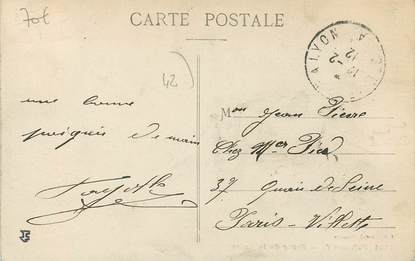 70€
CARTE POSTALE
A LYON
12-2
12
42
une bonne
poignée de main
Mon Jean Pierre
Chez Mer
37 Quai de Seine
Paris-Villette